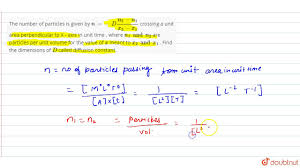 The number of particles is given by n = -D (n₂ - n₁)/(x₂ - x₁) crossing a unit
area perpendicular to X - axis in unit time , where n₁ and n₂ are
particles per unit volume for the value of x meant to x₂ and x₁ . Find
the dimensions of D called diffusion constant.
n = no of particles passing from unit area in unit time
= [M⁰L⁰T⁰] / [A]×[t] = 1 / [L²][T] = [L⁻² T⁻¹]
n₁ = n₂ = particles / vol = 1 / [L³
doubtnut